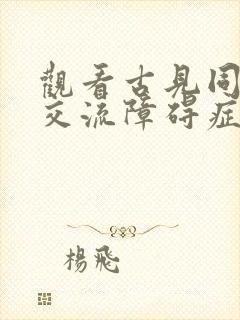 觀看古見同
交流障碍症
楊飛